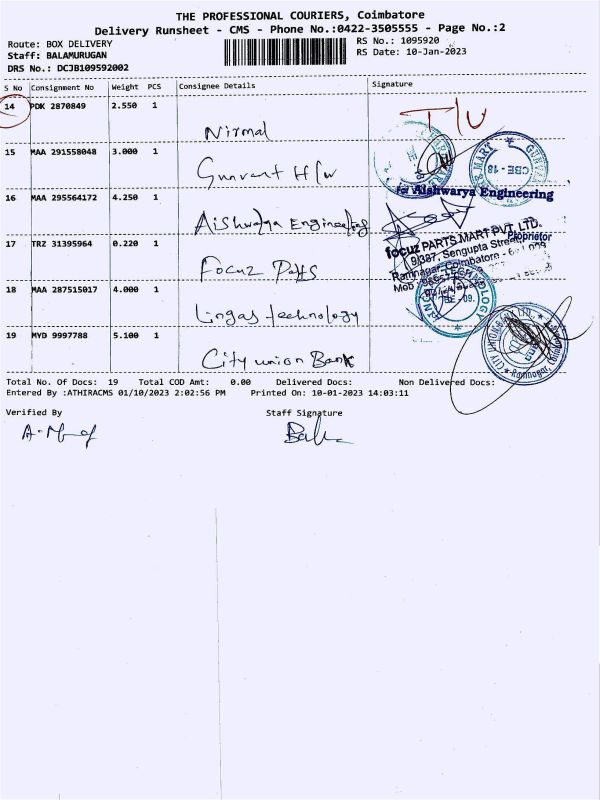 THE PROFESSIONAL COURIERS, Coimbatore
Delivery Runsheet - CMS - Phone No.:0422-3505555 - Page No.:2
Route: BOX DELIVERY
Staff: BALAMURUGAN
DRS No.: DCJB109592002
RS No.: 1095920
RS Date: 10-Jan-2023
S No Consignment No Weight PCS Consignee Details Signature
14 PDK 2870849 2.550 1
Nirmal T/U
15 MAA 291558048 3.000 1
Gunvant H/w
CBE - 18
16 MAA 295564172 4.250 1
for Aishwarya Engineering
Aishwarya Engineering
Proprietor
17 TRZ 31395964 0.220 1
focuz PARTS MART PVT. LTD.
9/387, Sengupta Street
Ramnagar, Coimbatore -
Focuz Parts
18 MAA 287515017 4.000 1
Lingas technology
19 MYD 9997788 5.100 1
City union Bank
Total No. Of Docs: 19 Total COD Amt: 0.00 Delivered Docs: Non Delivered Docs:
Entered By :ATHIRACMS 01/10/2023 2:02:56 PM Printed On: 10-01-2023 14:03:11
Verified By Staff Signature